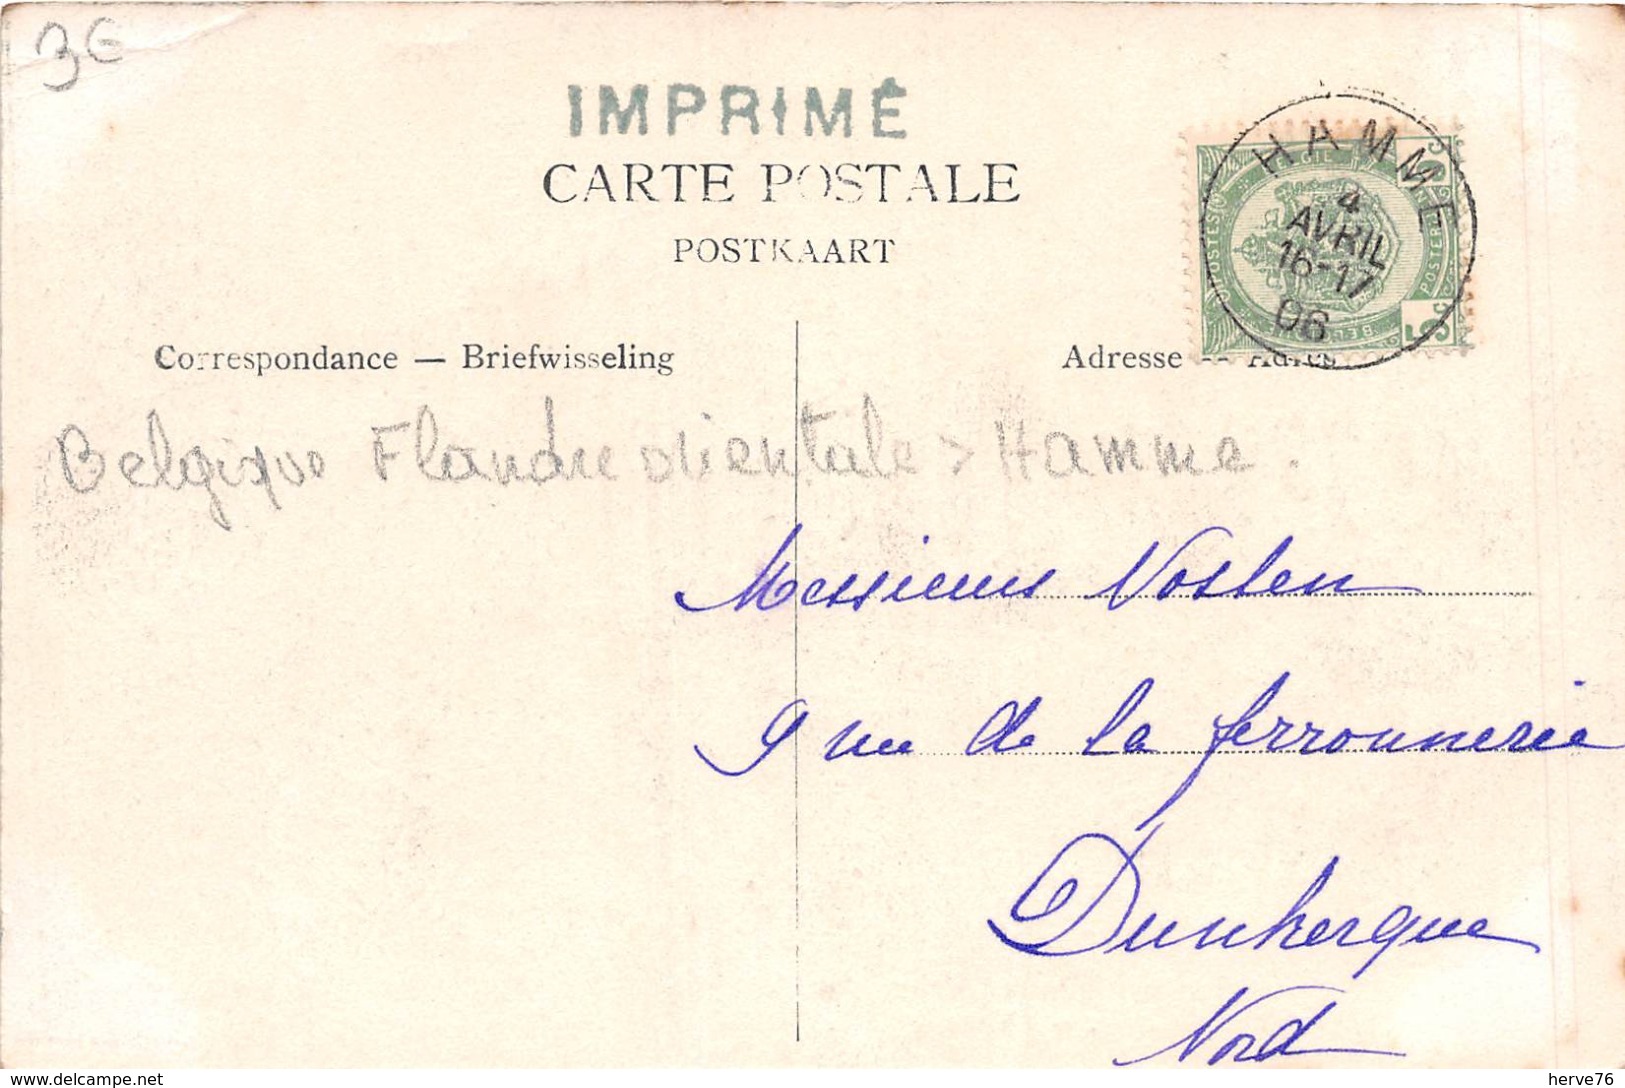 3€
IMPRIMÉ
CARTE POSTALE
POSTKAART
HAMME
4
AVRIL
16-17
06
5c
Correspondance — Briefwisseling
Adresse -- Adres
Belgique Flandre orientale > Hamme.
Messieurs Vosten
9 rue de la ferronnerie
Dunkerque
Nord
www.delcampe.net
herve76